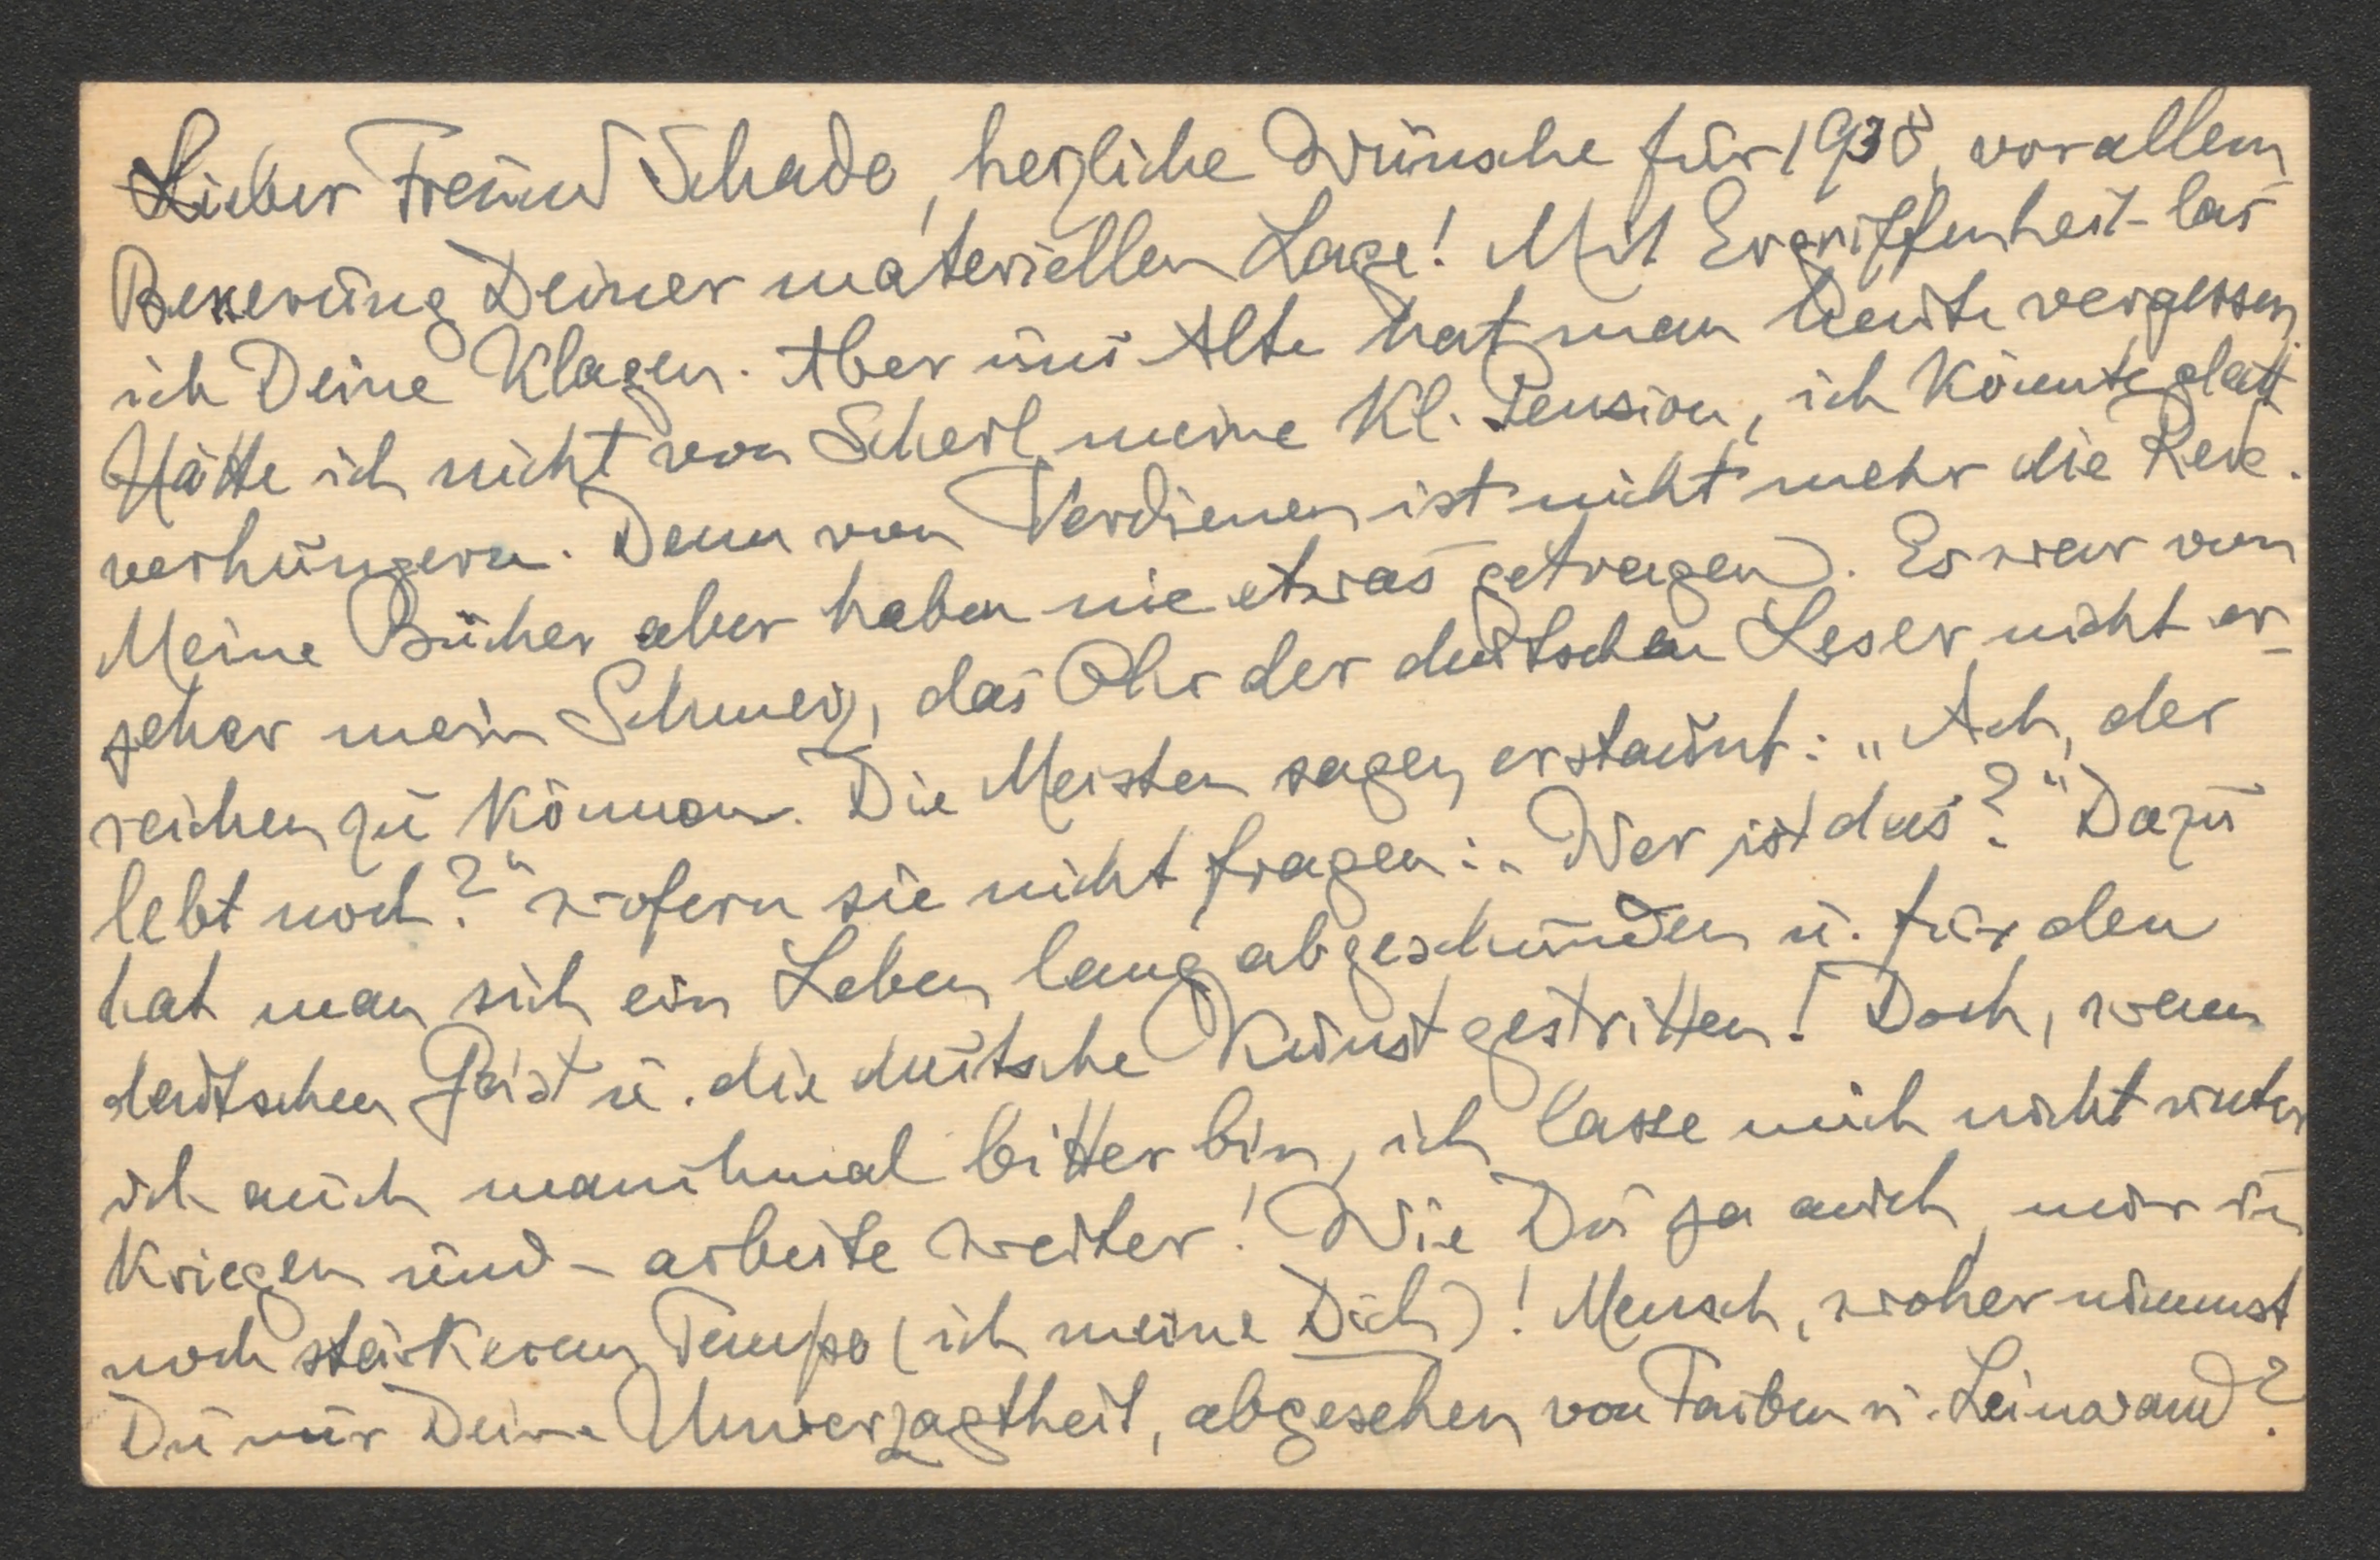 Lieber Freund Schade, herzliche Wünsche für 1938, vor allem
Besserung Deiner materiellen Lage! Mit Ergriffenheit las
ich Deine Klagen. Aber uns Alte hat man heute vergessen.
Hätte ich nicht von Scherl meine kl. Pension, ich könnte glatt
verhungern. Denn von Verdienen ist nicht mehr die Rede.
Meine Bücher aber haben nie etwas getragen. Es war von
jeher mein Schmerz, das Ohr der deutschen Leser nicht er-
reichen zu können. Die Meisten sagen erstaunt: „Ach, der
lebt noch?“ wofern sie nicht fragen: „Wer ist das?“ Dazu
hat man sich ein Leben lang abgeschunden u. für den
deutschen Geist u. die deutsche Kunst gestritten! Doch, wenn
ich auch manchmal bitter bin, ich lasse mich nicht unter
kriegen und – arbeite weiter! Wie Du ja auch, nur in
noch stärkerem Tempo (ich meine Dich)! Mensch, woher nimmst
Du nur Deine Unverzagtheit, abgesehen von Farben u. Leinwand?